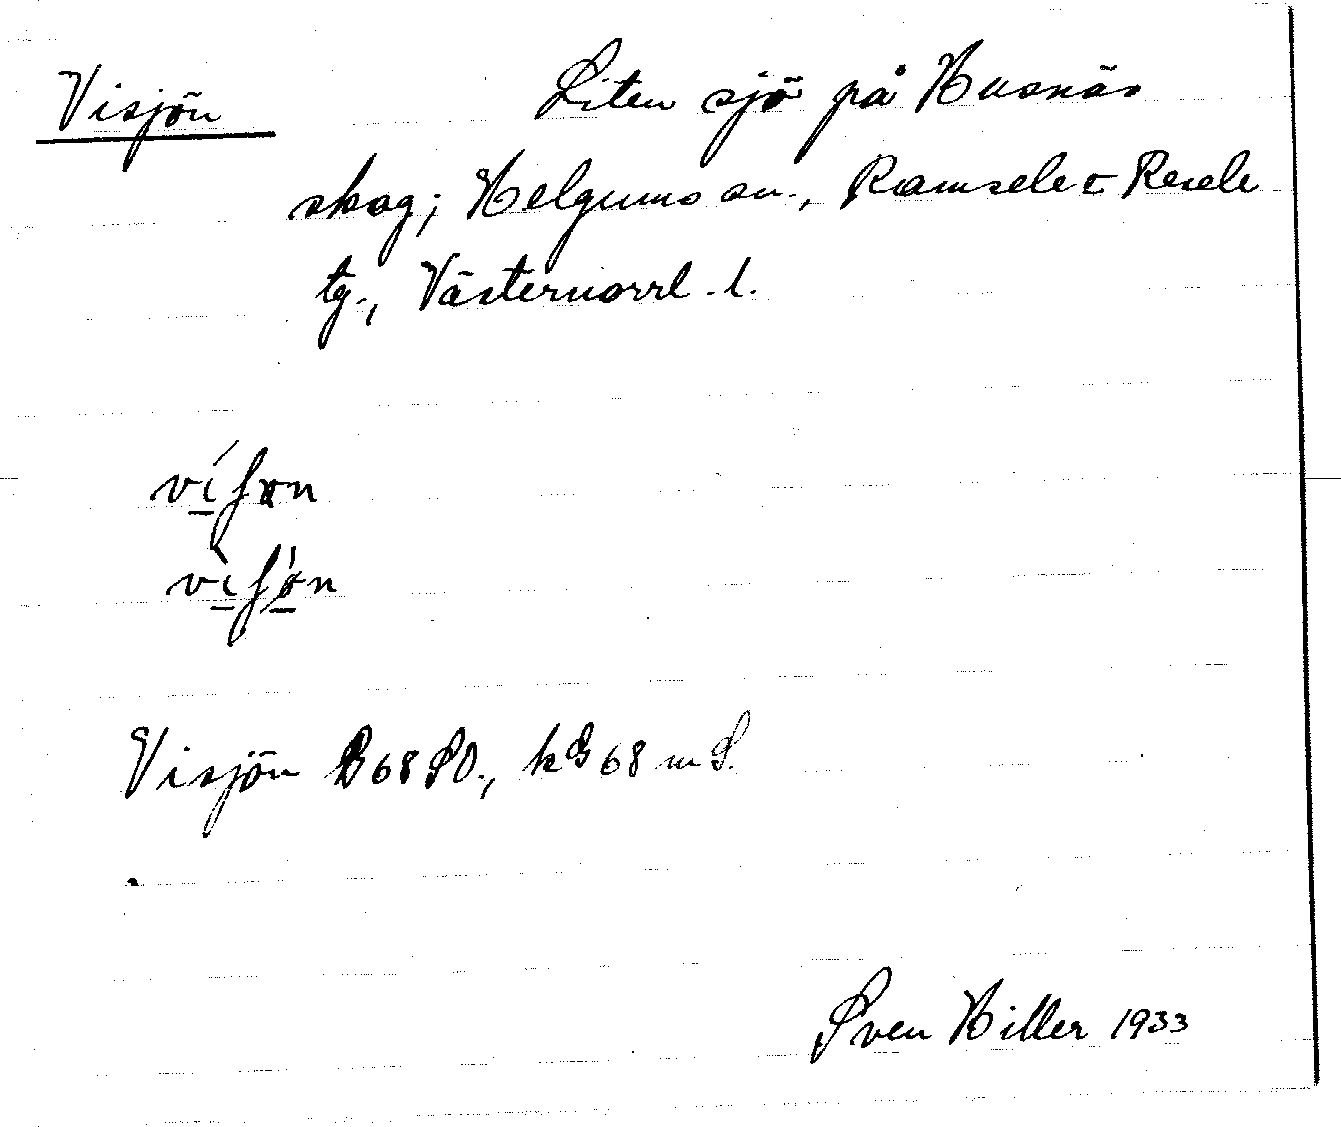 Visjön Liten sjö på Husnäs
skog; Helgums sn., Ramsele o Resele
tg., Västernorrl. l.
víʃɤn
vìʃǿn
Visjön B 68 SO., kG 68 m S.
Sven Hiller 1933